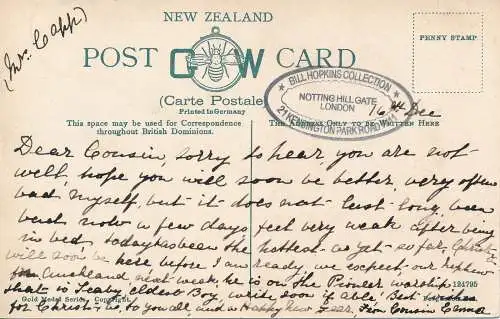 NEW ZEALAND
(Mrs. Capp)
POST CARD
G W
PENNY STAMP
(Carte Postale)
Printed in Germany
BILL HOPKINS COLLECTION
NOTTING HILL GATE
LONDON
21 KENSINGTON PARK ROAD W11
16th Dec
This space may be used for Correspondence
throughout British Dominions.
The Address Only to be Written Here
Dear Cousin, sorry to hear you are not
well, hope you will soon be better, very often
bad myself, but it does not last long, been
bad now a few days feel very weak after being
in bed, today has been the hottest as yet so far,
will soon be here before I am ready, we expect our nephew
Auckland next week, he is on the Pioneer warship
that is eldest Boy, write soon if able, Best
for Christ to you all, and a Happy New Year. From Cousin Emma
Gold Medal Series, Copyright.
124795